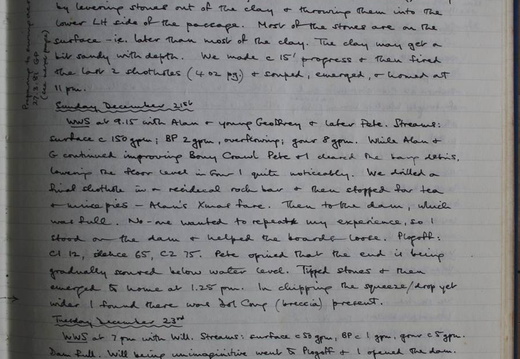 by levering stones out of the clay & throwing them into the
lower LH side of the passage. Most of the stones are on the
surface - ie. later than most of the clay. The clay may get a
bit sandy with depth. We made c 15' progress & then fired
the last 2 shotholes (4 oz pg.) & souped, emerged, & homed at
11 pm.
Sunday December 21st
WWS at 9.15 with Alan & young Geoffrey & later Pete. Streams:
surface c 150 gpm; BP 2 gpm, overflowing; gour 8 gpm. While Alan &
G continued improving Bony Crawl Pete & I cleared the bang debris,
lowering the floor level in four 1 quite noticeably. We drilled a
final shothole in a residual rock bar & then stopped for tea
& mince pies - Alan's Xmas fare. Then to the dam, which
was full. No-one wanted to repeat my experience, so I
stood on the dam & helped the boards loose. Plogoff:
C1 12, 65, C2 75. Pete opined that the end is being
gradually scoured below water level. Tipped stones & then
emerged & home at 1.25 pm. In chipping the squeeze/drop yet
wider I found there was Dol Cong (breccia) present.
Tuesday December 23rd
WWS at 7 pm with Will. Streams: surface c 50 gpm, BP c 1 gpm, gour c 5 gpm.
Dam full. Will being unimaginative went to Plogoff & I opened the dam